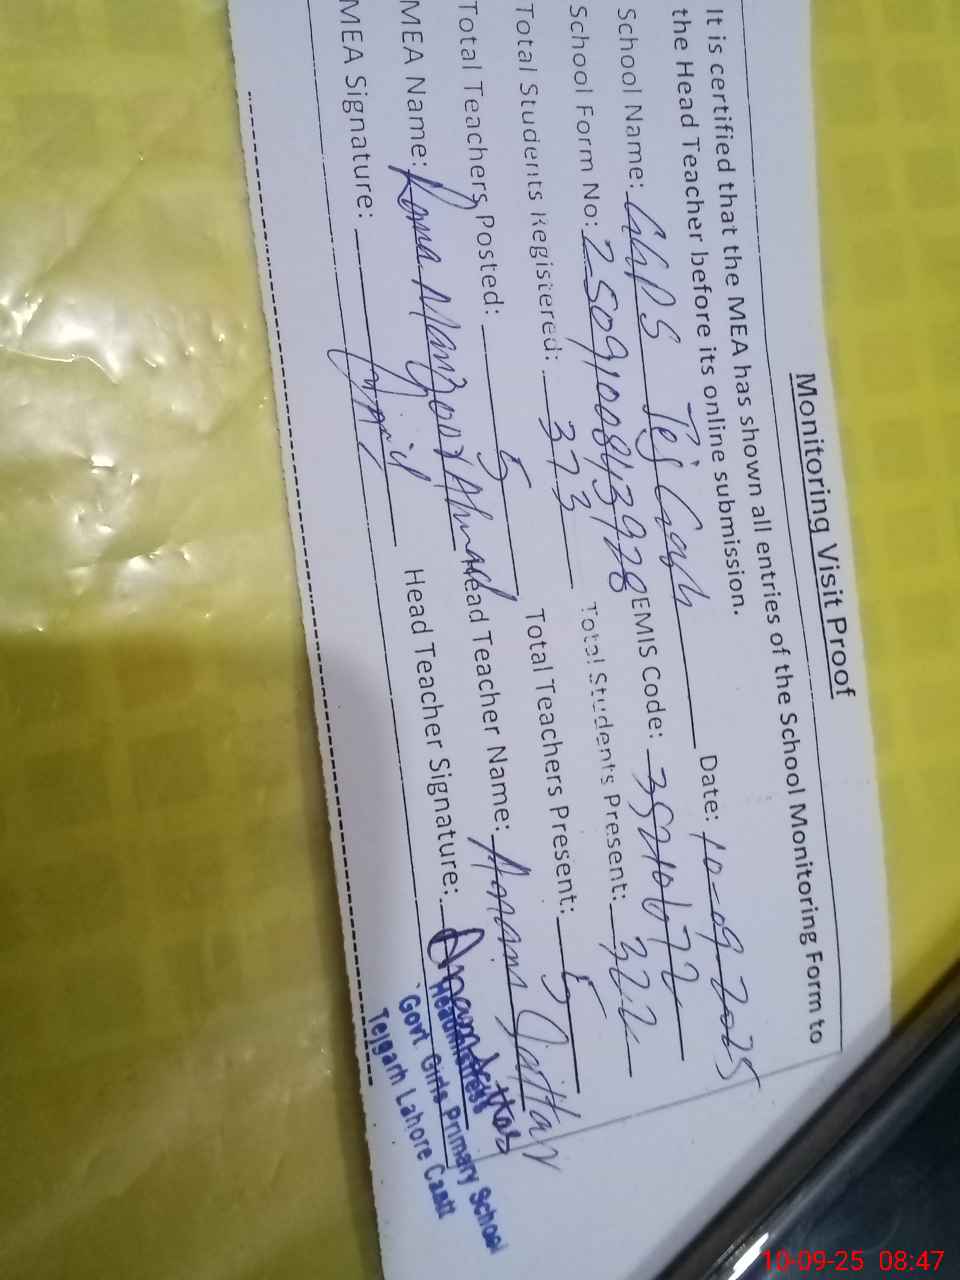 Monitoring Visit Proof
It is certified that the MEA has shown all entries of the School Monitoring Form to
the Head Teacher before its online submission.
School Name: GGPS Tej Garh Date: 10-09-2025
School Form No: 2509100843978 EMIS Code: 35210672
Total Students Registered: 373 Total Students Present: 322
Total Teachers Posted: 5 Total Teachers Present: 5
MEA Name: Roma Manzoor Ahmad Head Teacher Name: Anam Sattar
MEA Signature: Head Teacher Signature: Anam Sattar
Headmistress
Govt Girls Primary School
Tejgarh Lahore Cantt
10-09-25 08:47